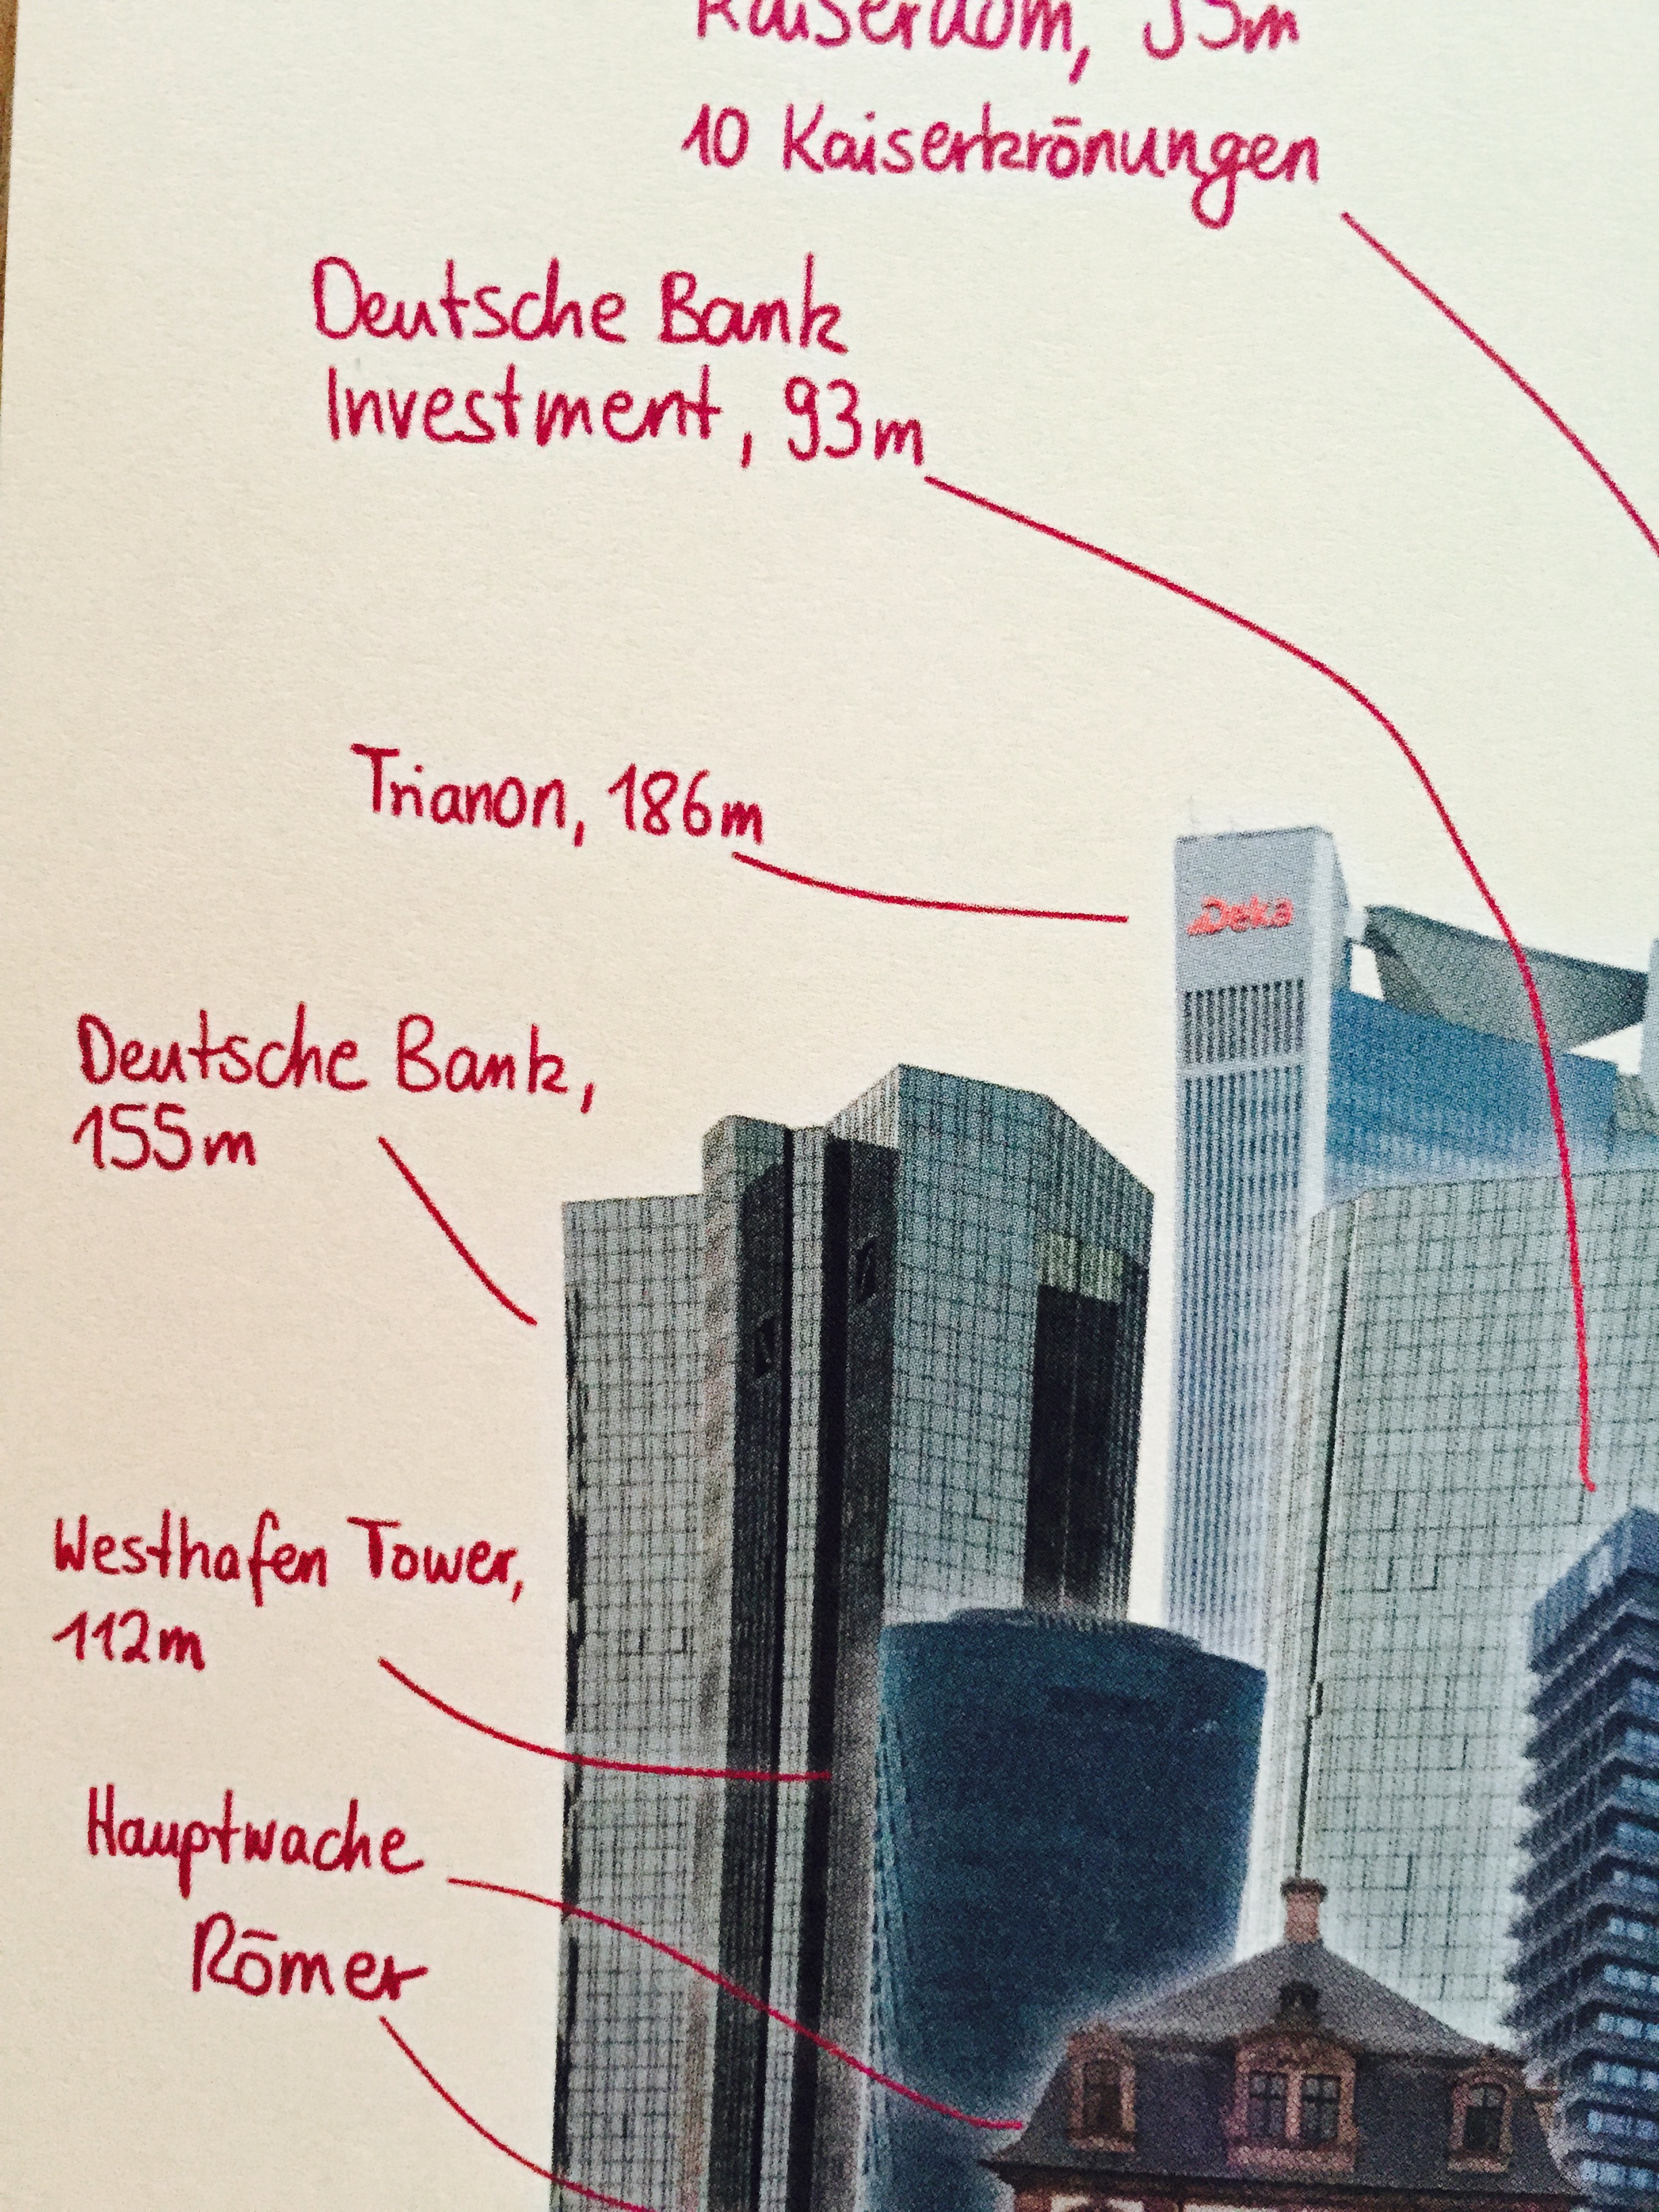 Kaiserdom, 95m
10 Kaiserkrönungen
Deutsche Bank
Investment, 93m
Trianon, 186m
Deka
Deutsche Bank,
155m
Westhafen Tower,
112m
Hauptwache
Römer